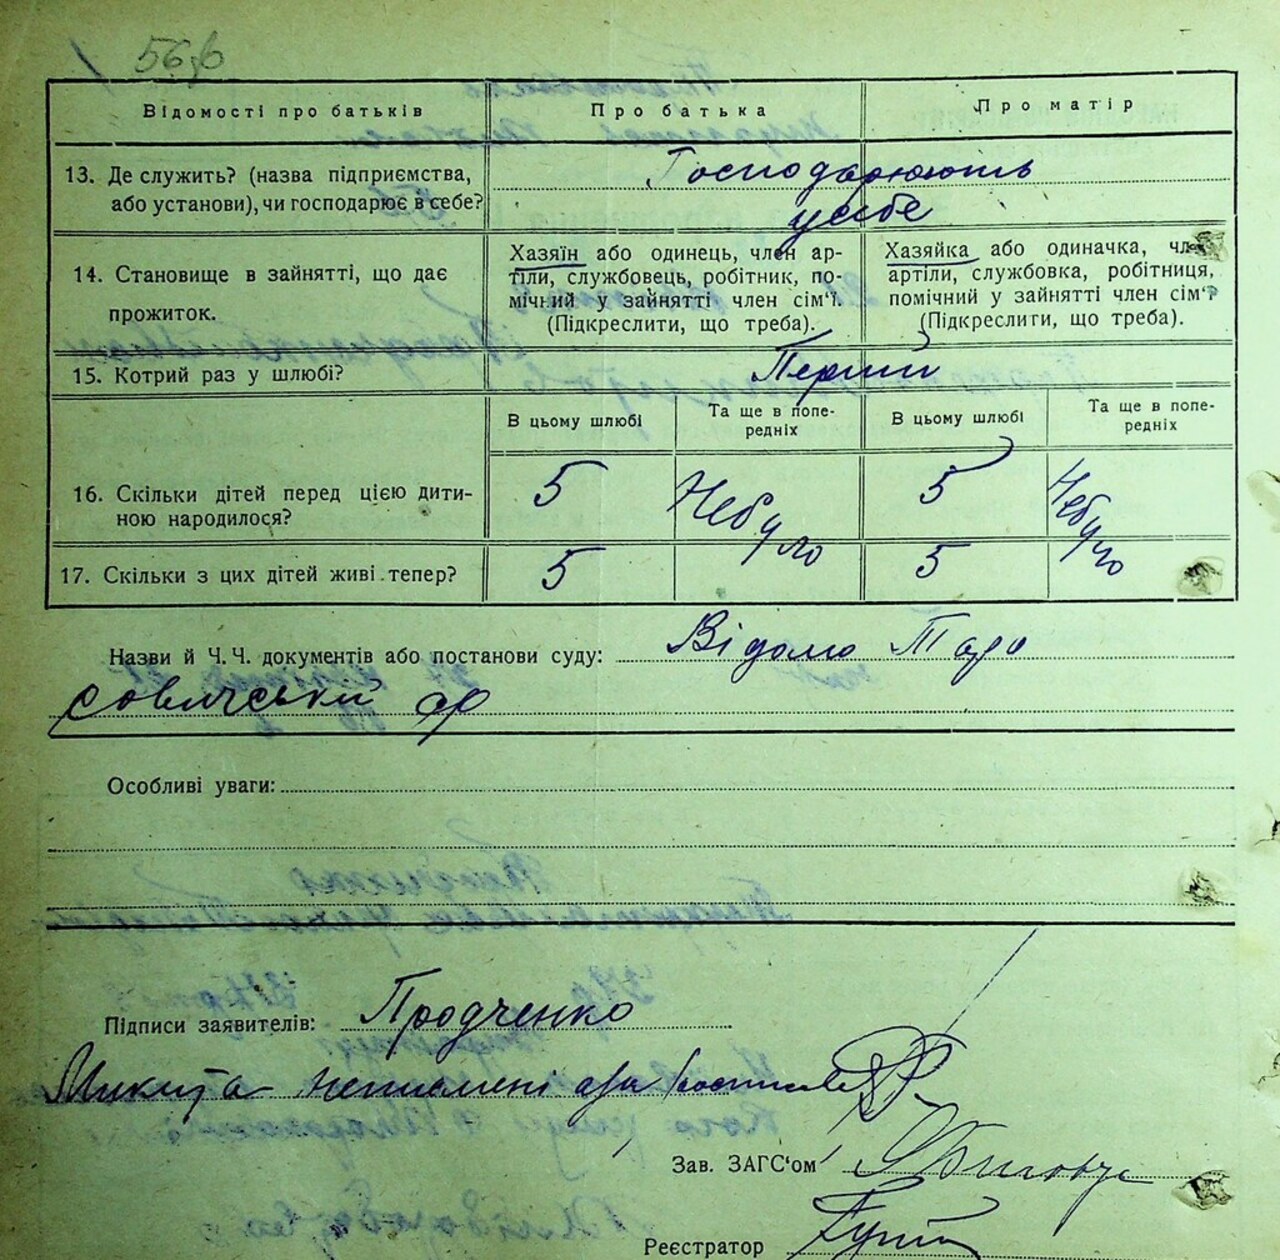 56
Відомості про батьків
Про батька
Про матір
13. Де служить? (назва підприємства,
або установи), чи господарює в себе?
Господарюють
усебе
14. Становище в зайнятті, що дає
прожиток.
Хазяїн або одинець, член ар-
тіли, службовець, робітник, по-
мічний у зайнятті член сім‘ї.
(Підкреслити, що треба).
Хазяйка або одиначка, член
артіли, службовка, робітниця,
помічний у зайнятті член сім‘ї
(Підкреслити, що треба).
15. Котрий раз у шлюбі?
Перший
В цьому шлюбі
Та ще в попе-
редніх
В цьому шлюбі
Та ще в попе-
редніх
16. Скільки дітей перед цією дити-
ною народилося?
5
Небуло
5
Небуло
17. Скільки з цих дітей живі тепер?
5
5
Назви й Ч. Ч. документів або постанови суду:
Відомо
Особливі уваги:
Підписи заявителів:
Продченко
Микита неписмені
Зав. ЗАГС‘ом
Реєстратор